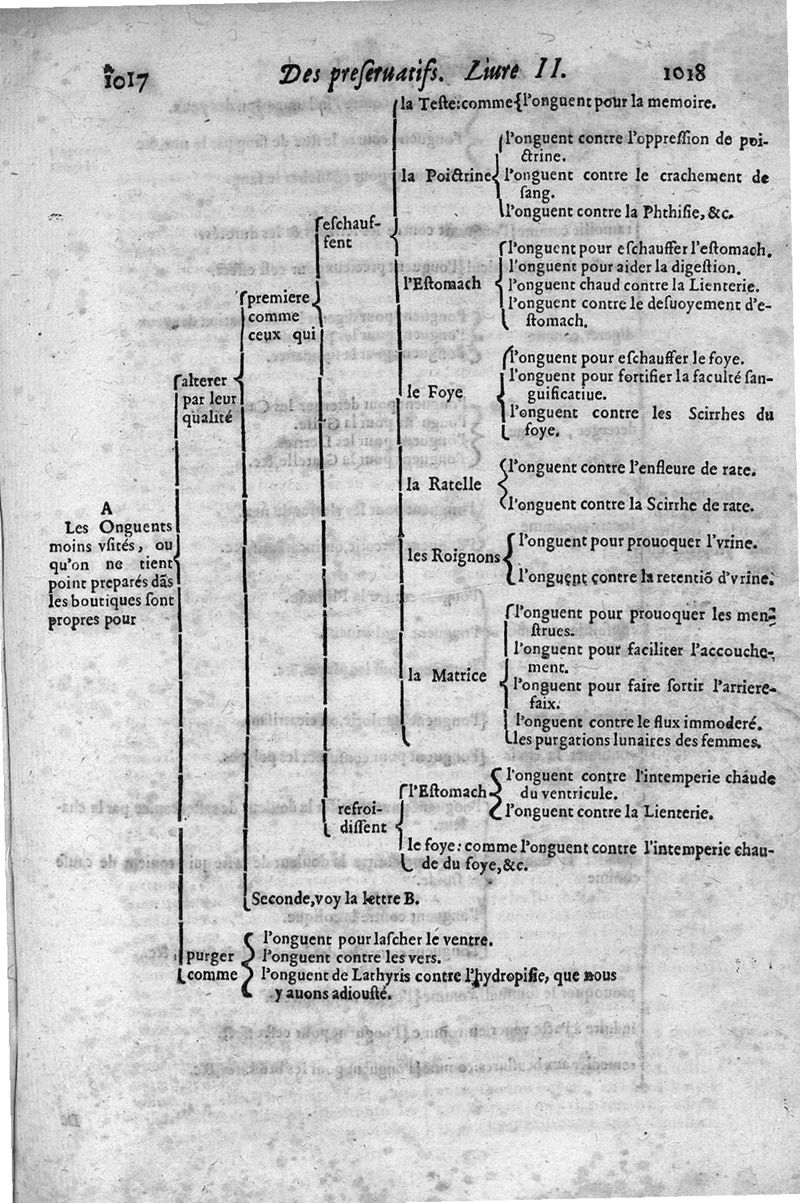 1017 Des preſeruatifs. Liure II. 1018
A
Les Onguents
moins vſités, ou
qu'on ne tient
point preparés dãs
les boutiques ſont
propres pour
alterer
par leur
qualité
premiere
comme
ceux qui
eſchauf-
fent
la Teſte: comme{l'onguent pour la memoire.
la Poictrine
l'onguent contre l'oppreſſion de poi-
ctrine.
l'onguent contre le crachement de
ſang.
l'onguent contre la Phthiſie, &c.
l'Eſtomach
l'onguent pour eſchauffer l'eſtomach.
l'onguent pour aider la digeſtion.
l'onguent chaud contre la Lienterie.
l'onguent contre le deſuoyement d'e-
ſtomach.
le Foye
l'onguent pour eſchauffer le foye.
l'onguent pour fortifier la faculté ſan-
guificatiue.
l'onguent contre les Scirrhes du
foye.
la Ratelle
l'onguent contre l'enfleure de rate.
l'onguent contre la Scirrhe de rate.
les Roignons
l'onguent pour prouoquer l'vrine.
l'onguent contre la retentiõ d'vrine.
la Matrice
l'onguent pour prouoquer les men-
ſtrues.
l'onguent pour faciliter l'accouche-
ment.
l'onguent pour faire ſortir l'arriere-
faix.
l'onguent contre le flux immoderé.
les purgations lunaires des femmes.
refroi-
diſſent
l'Eſtomach
l'onguent contre l'intemperie chaude
du ventricule.
l'onguent contre la Lienterie.
le foye: comme l'onguent contre l'intemperie chau-
de du foye, &c.
Seconde, voy la lettre B.
purger
comme
l'onguent pour laſcher le ventre.
l'onguent contre les vers.
l'onguent de Lathyris contre l'hydropiſie, que nous
y auons adiouſté.